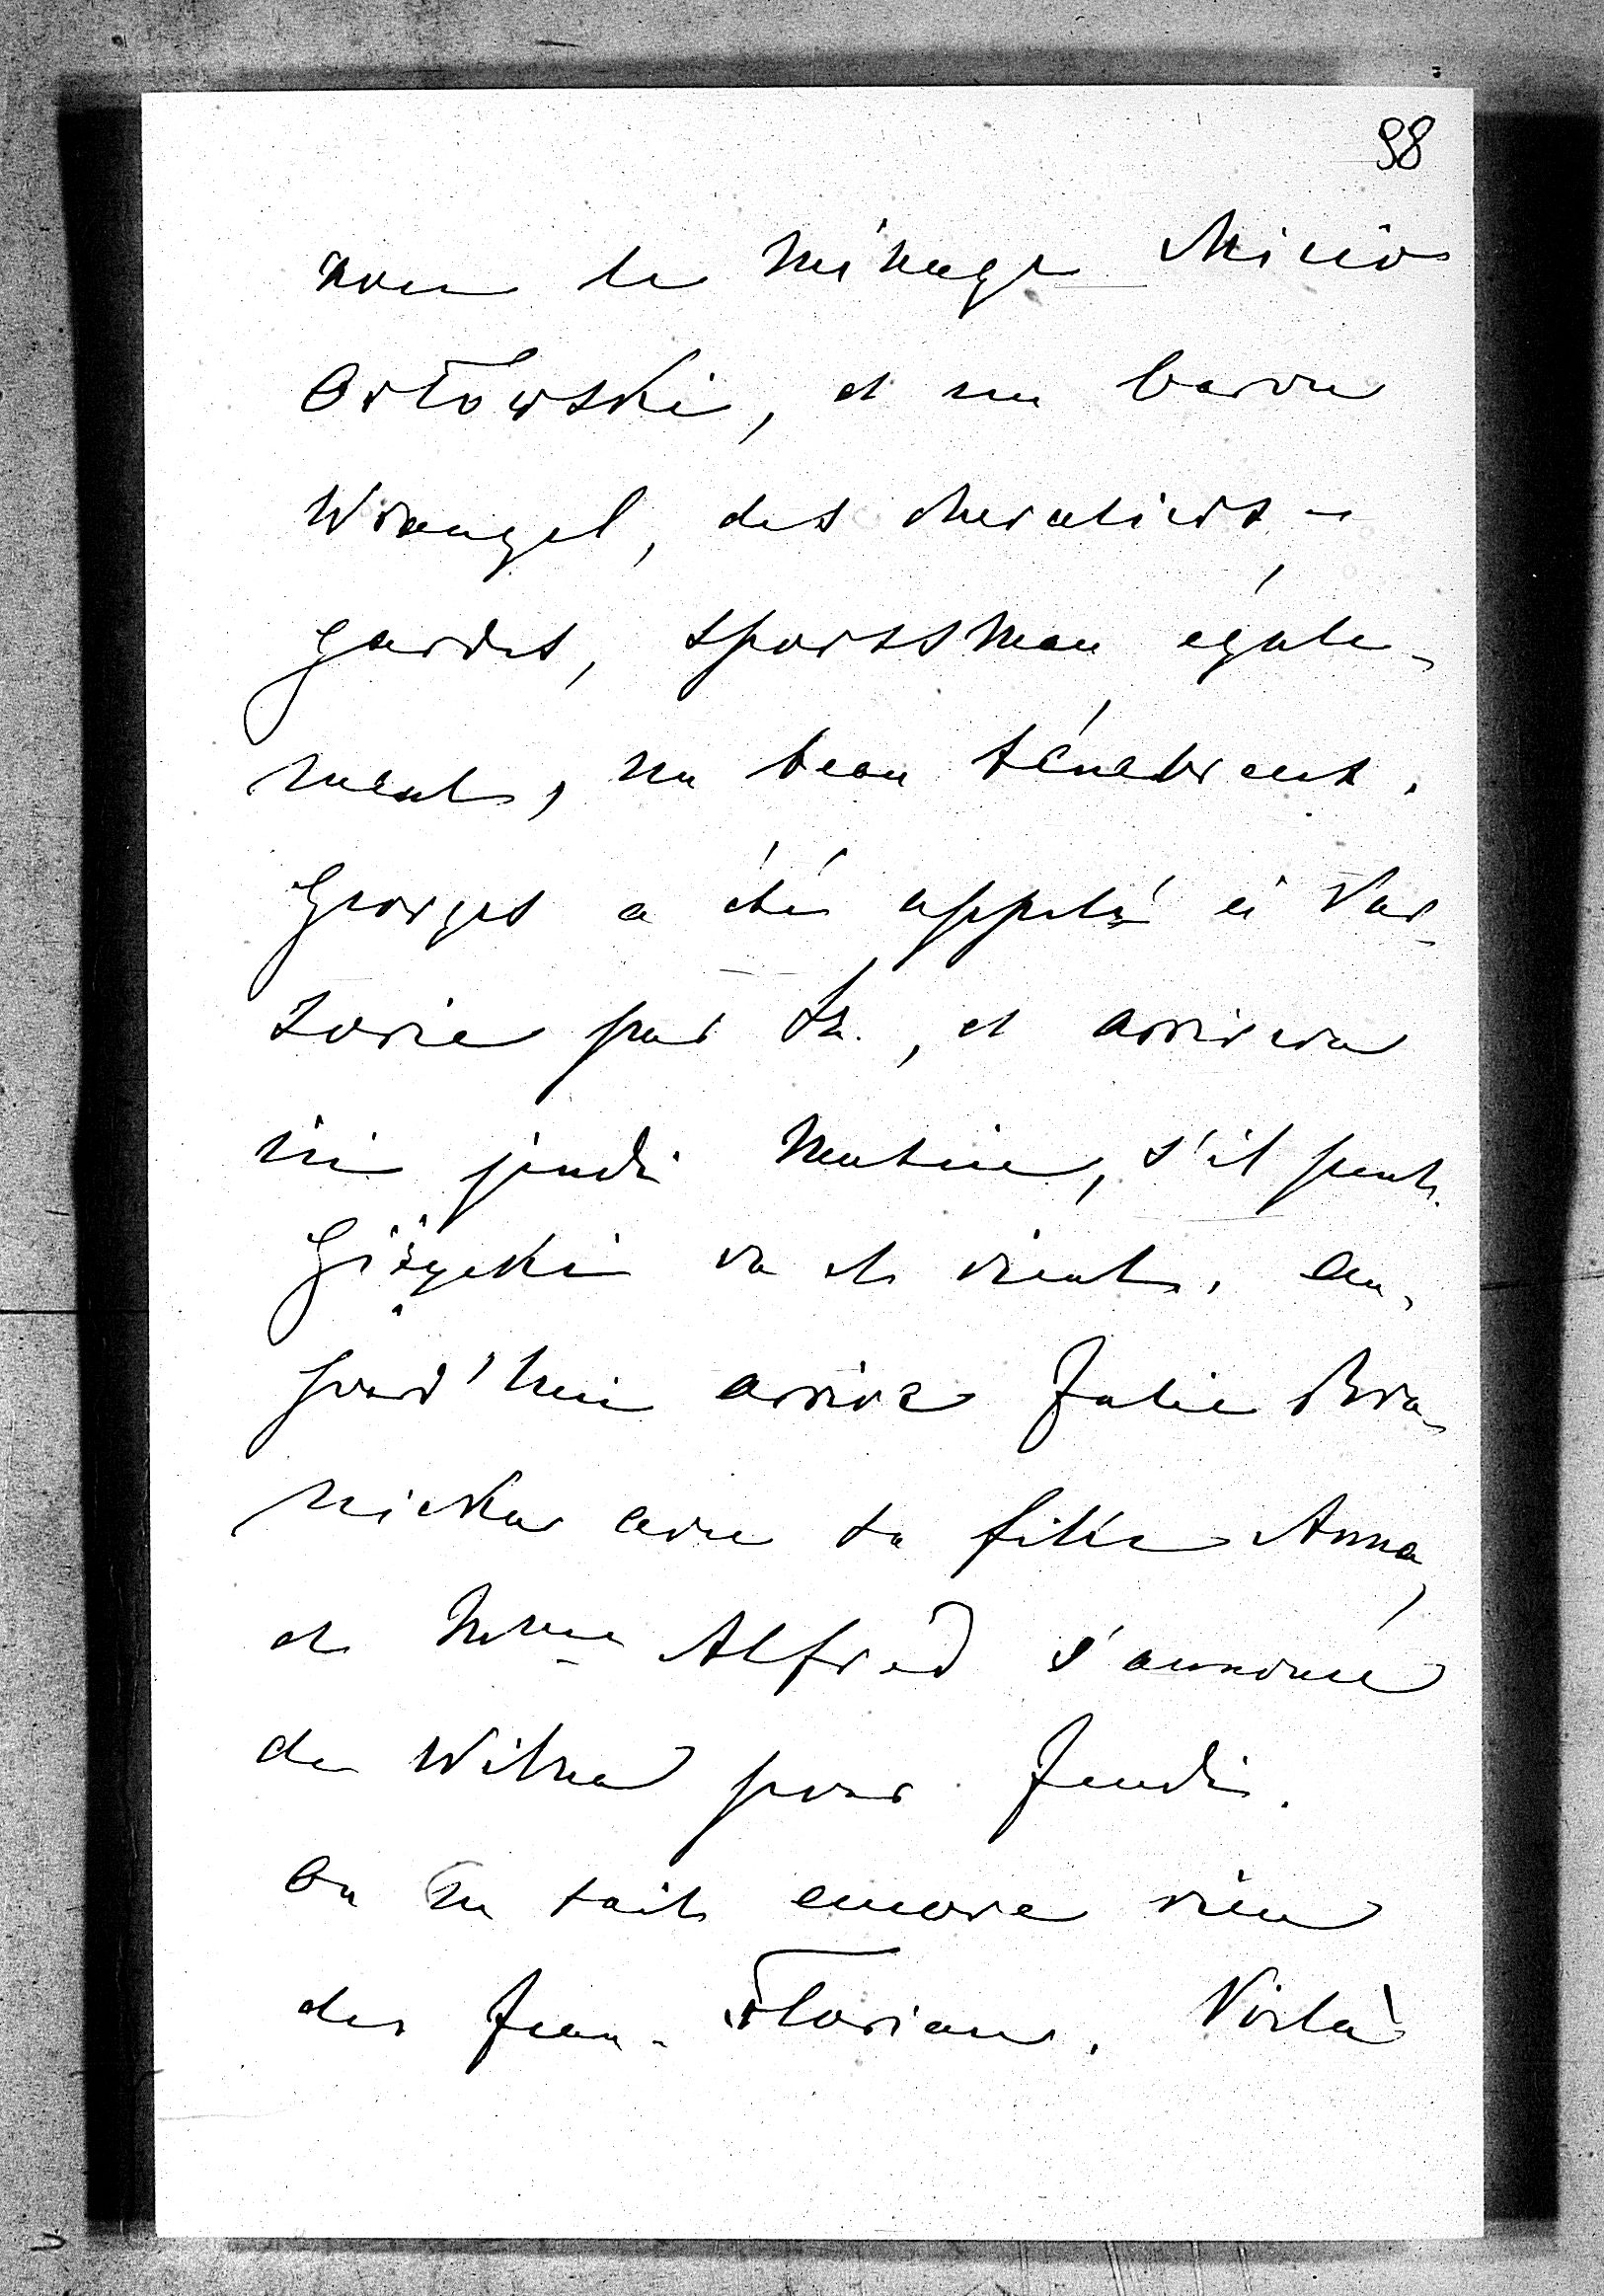 98
nous le ménage Micio
Orłowski, et un baron
Wrangel, des chevaliers-
gardes, sportsman égale-
ment, un beau ténébreux.
Georges a été appelé à Var-
zovie par Sk., et arrivera
ici jeudi matin, s'il peut.
Giżycki va et vient. Au-
jourd'hui arrive Julie Bra-
nicka avec sa fille Anna,
et Mme Alfred s'annonce
de Wilna pour Jeudi.
On ne sait encore rien
des Jean-Florian. Voilà